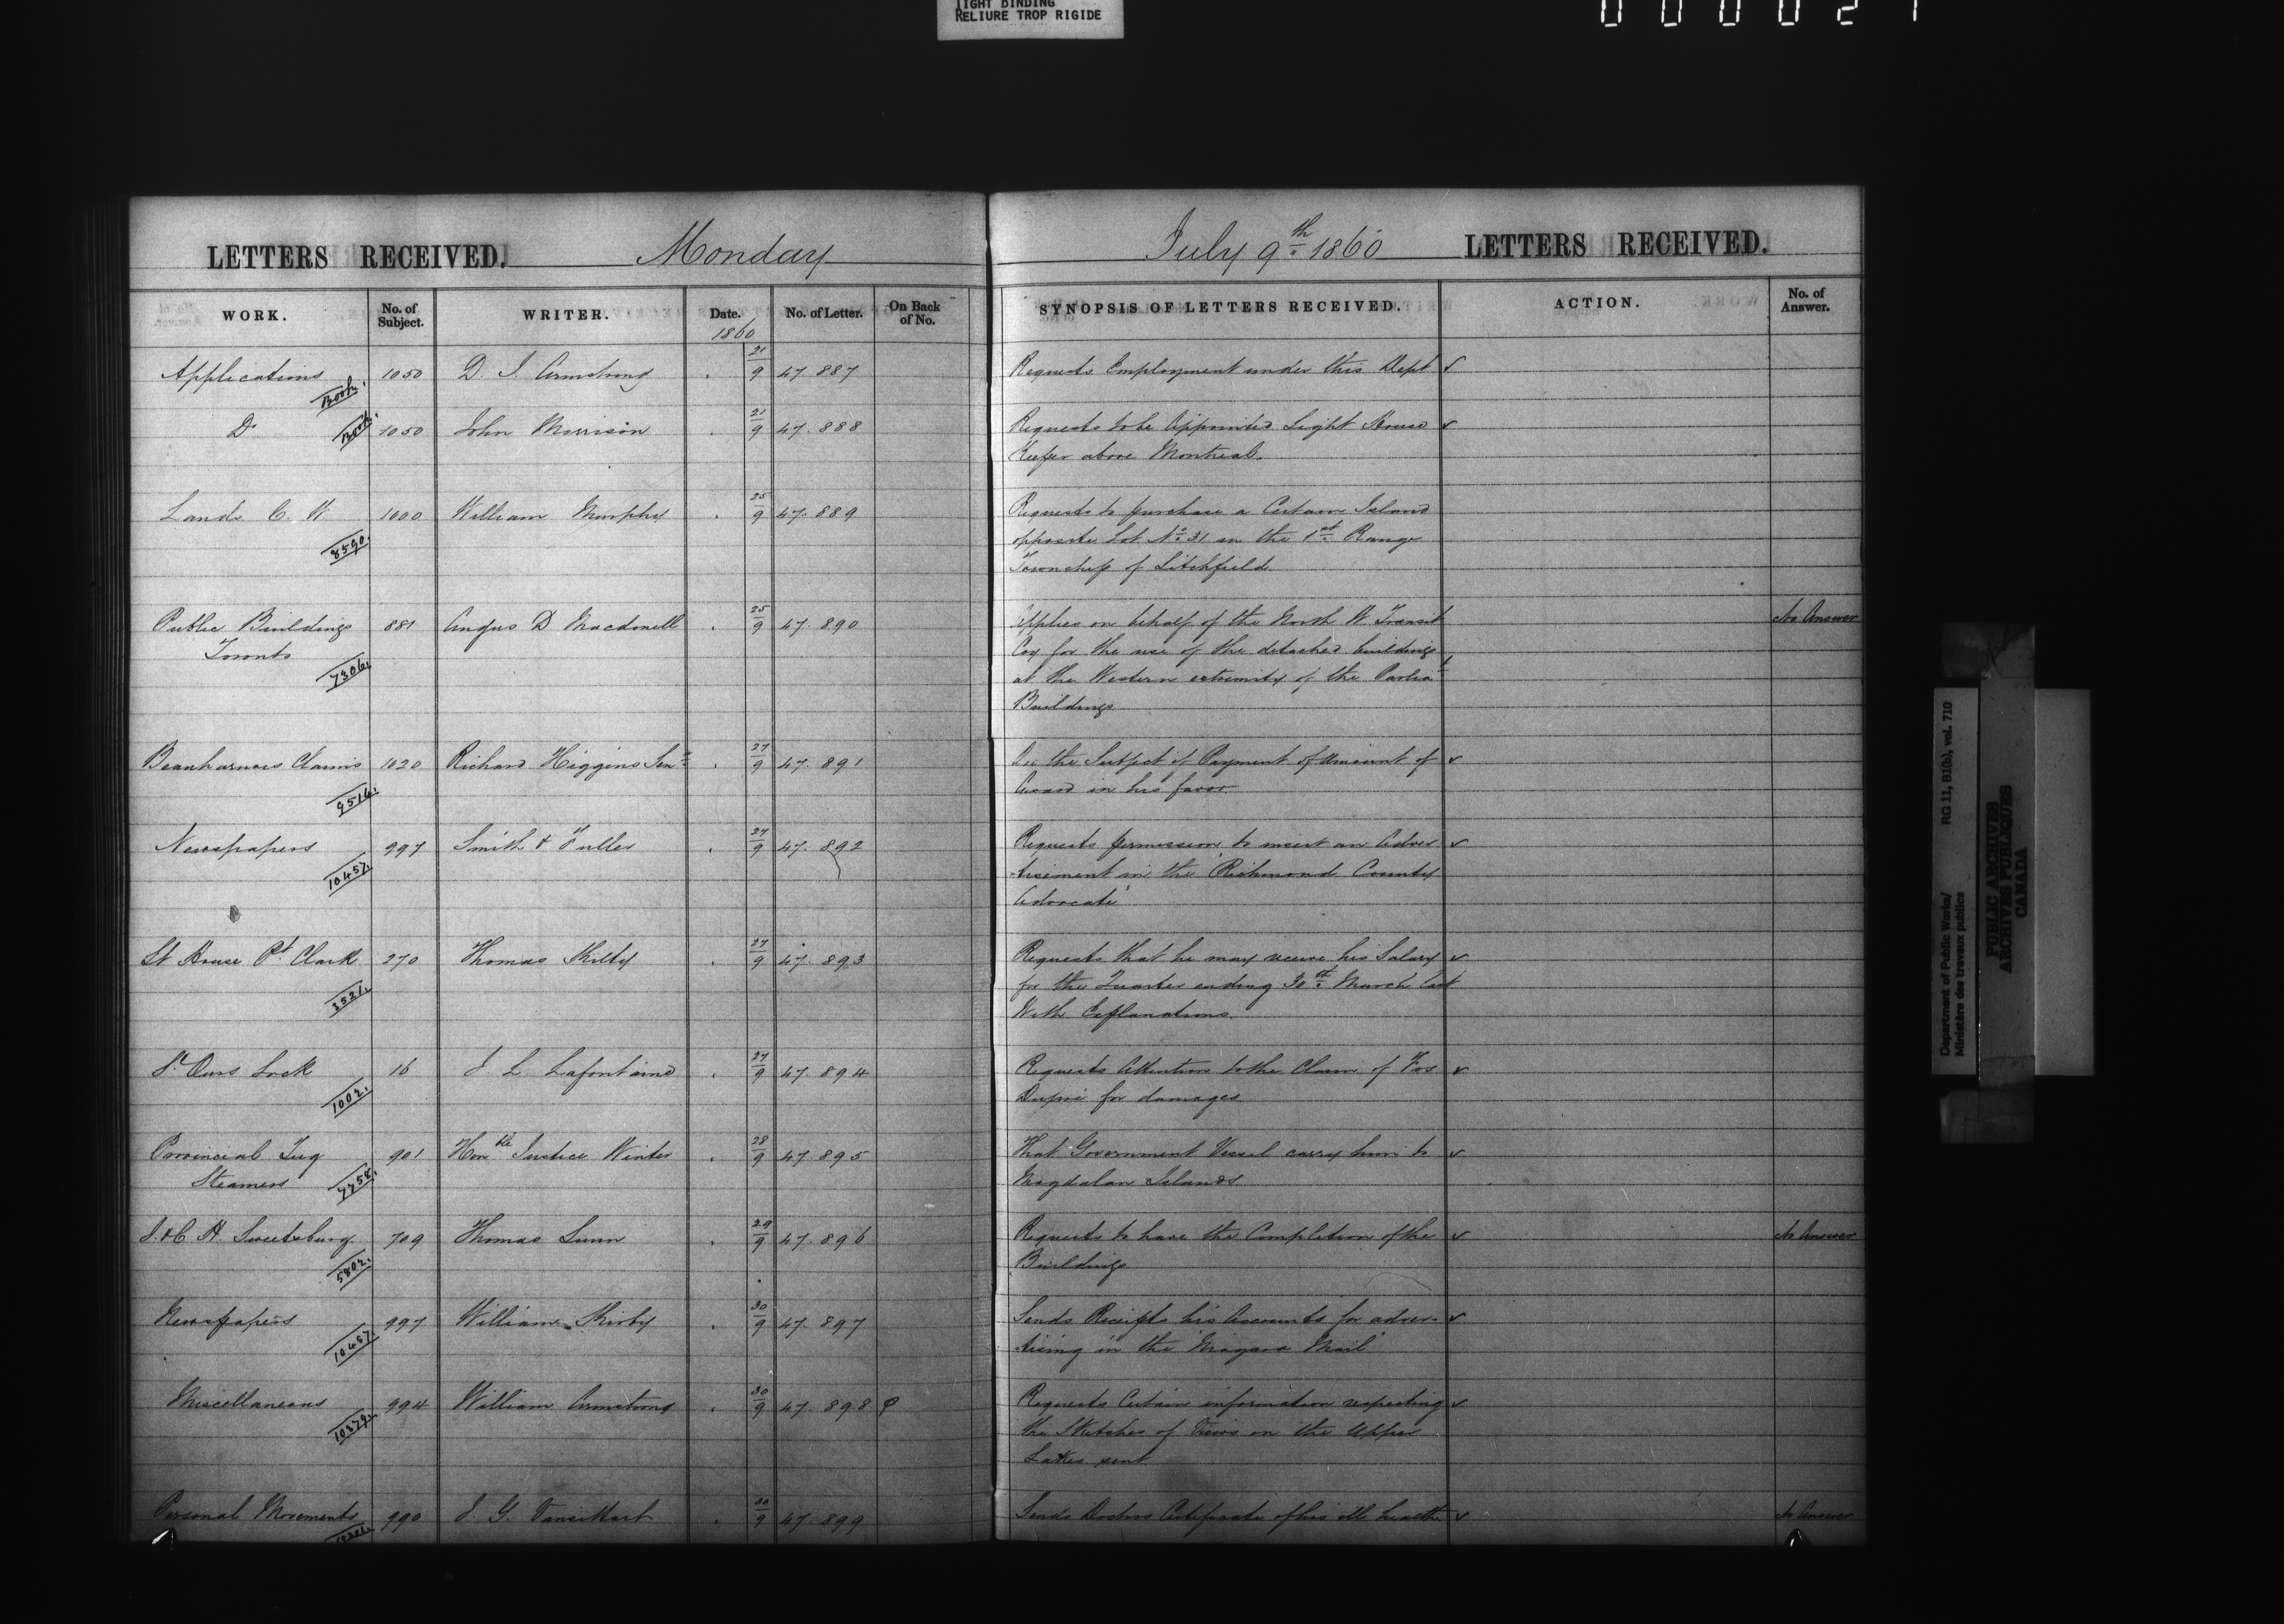 TIGHT BINDING
RELIURE TROP RIGIDE
LETTERS RECEIVED. Monday
July 9th 1860 LETTERS RECEIVED.
WORK. No. of Subject. WRITER. Date. No. of Letter. On Back of No. SYNOPSIS OF LETTERS RECEIVED. ACTION. No. of Answer.
1860
Applications 1050 D. J. Armstrong 21/9 47.887 Requests Employment under this Dept
Book.
Do 1050 John Morrison 21/9 47.888 Requests to be Appointed Light House
Book.
Keeper above Montreal.
Lands C. W. 1000 William Murphy 25/9 47.889 Requests to purchase a Certain Island
8590. opposite Lot No. 31 in the 1st Range
Township of Litchfield.
Public Buildings 881 Angus D Macdonell 25/9 47.890 Applies on behalf of the North W. Transit No Answer
Toronto Coy for the use of the detached buildings
7306. at the Western extremity of the Parliat
Buildings
Beauharnois Claims 1020 Richard Higgins Senr 27/9 47.891 On the Subject of Payment of Amount of
9516. Award in his favor.
Newspapers 997 Smith & Fuller 27/9 47.892 Requests permission to insert an Adver
10457. -tisement in the 'Richmond County
Advocate'
Lt House Pt Clark 270 Thomas Kilty 27/9 47.893 Requests that he may receive his Salary
3521. for the Quarter ending 30th March last
With Explanations.
St Ours Lock 16 J L Lafontaine 27/9 47.894 Requests Attention to the Claim of Frs
1002. Dupré for damages
Provincial Tug 901 Honble Justice Winter 28/9 47.895 That Government Vessel carry him to
Steamers 7758. Magdalan Islands.
J. & C. H. Sweetsburg. 709 Thomas Lunn 29/9 47.896 Requests to have the Completion of the No Answer
5802. Buildings
Newspapers 997 William Kirby 30/9 47.897 Sends Receipts his Accounts for adver-
10457. tising in the 'Niagara Mail'
Miscellaneous 994 William Armstrong 30/9 47.898 Requests Certain information respecting
10379. the Sketches of Views on the Upper
Lakes sent
Personal Movements 990 J. G. Vansittart 30/9 47.899 Sends Doctors Certificate of his ill health No Answer
Department of Public Works/ RG 11, B1(b), vol. 710
Ministère des travaux publics
PUBLIC ARCHIVES
ARCHIVES PUBLIQUES
CANADA